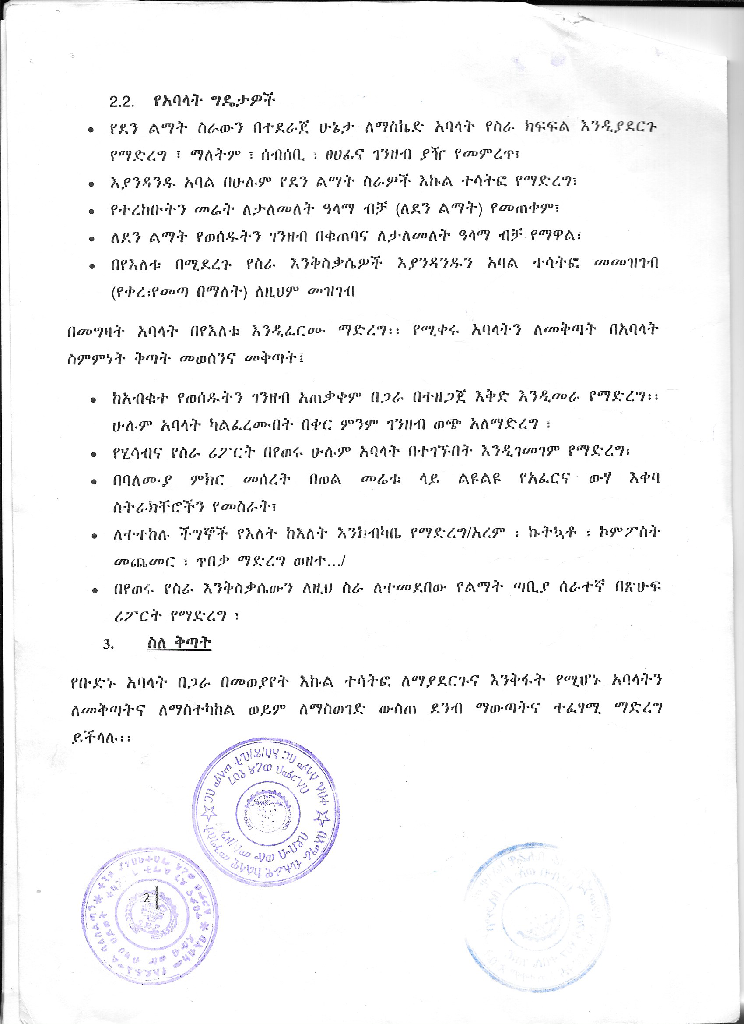 2.2. የአባላት ግዴታዎች
• የደን ልማት ስራውን በተደራጀ ሁኔታ ለማስኬድ አባላት የስራ ክፍፍል እንዲያደርጉ
የማድረግ ፣ ማለትም ፣ ሰብሳቢ ፣ ፀሀፊና ገንዘብ ያዥ የመምረጥ፣
• እያንዳንዱ አባል በሁሉም የደን ልማት ስራዎች እኩል ተሳትፎ የማድረግ፣
• የተረከቡትን መሬት ለታለመለት ዓላማ ብቻ (ለደን ልማት) የመጠቀም፣
• ለደን ልማት የወሰዱትን ገንዘብ በቁጠባና ለታለመለት ዓላማ ብቻ የማዋል፣
• በየእለቱ በሚደረጉ የስራ እንቅስቃሴዎች እያንዳንዱን አባል ተሳትፎ መመዝገብ
(የቀረ፣የመጣ በማለት) ለዚህም መዝገብ
በመግዛት አባላት በየእለቱ እንዲፈርሙ ማድረግ፡፡ የሚቀሩ አባላትን ለመቅጣት በአባላት
ስምምነት ቅጣት መወሰንና መቅጣት፤
• ከአብቁተ የወሰዱትን ገንዘብ አጠቃቀም በጋራ በተዘጋጀ እቅድ እንዲመራ የማድረግ፡፡
ሁሉም አባላት ካልፈረሙበት በቀር ምንም ገንዘብ ወጭ አለማድረግ ፣
• የሂሳብና የስራ ሪፖርት በየወሩ ሁሉም አባላት በተገኙበት እንዲገመገም የማድረግ፣
• በባለሙያ ምክር መሰረት በወል መሬቱ ላይ ልዩልዩ የአፈርና ውሃ እቀባ
ስትራክቸሮችን የመስራት፣
• ለተተከሉ ችግኞች የእለት ከእለት እንክብካቤ የማድረግ/አረም ፣ ኩትኳቶ ፣ ኮምፖስት
መጨመር ፣ ጥበቃ ማድረግ ወዘተ.../
• በየወሩ የስራ እንቅስቃሴውን ለዚህ ስራ ለተመደበው የልማት ጣቢያ ሰራተኛ በጽሁፍ
ሪፖርት የማድረግ ፣
3. ስለ ቅጣት
የቡድኑ አባላት በጋራ በመወያየት እኩል ተሳትፎ ለማያደርጉና እንቅፋት የሚሆኑ አባላትን
ለመቅጣትና ለማስተካከል ወይም ለማስወገድ ውስጠ ደንብ ማውጣትና ተፈፃሚ ማድረግ
ይችላሉ፡፡
2